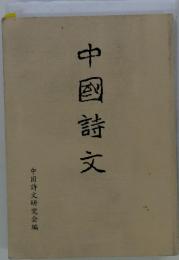 中國詩文
中国詩文研究会編